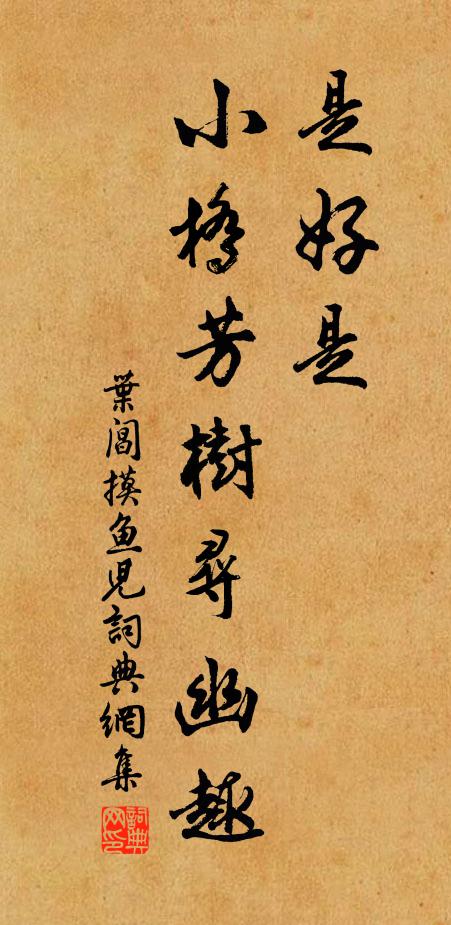 是好是
小橋芳樹尋幽趣
葉閶摸魚兒詞典網集
詞典网印